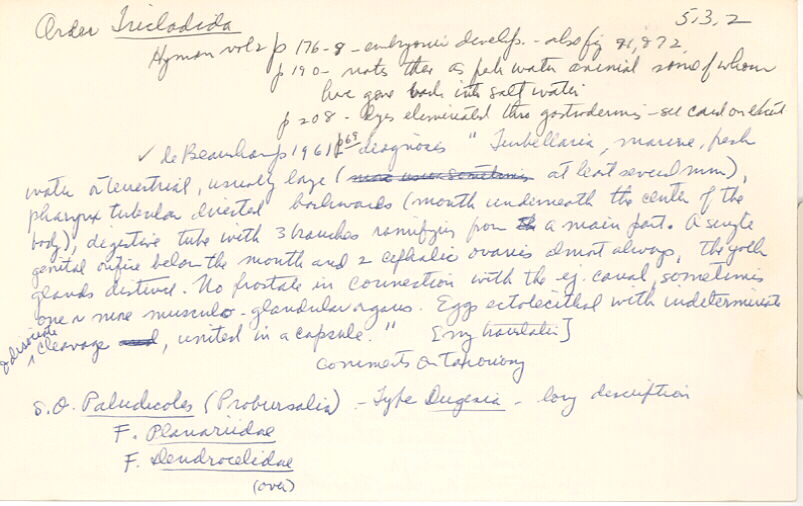 5.3.2
Order Tricladida
Hyman vol 2 p 176-8 - embryonic develp. - also fig 71, 72
p 190 - notes thes as fresh water animal some of whom
have gone back into salt water
p 208 - Dyes eliminated thru gastrodermis - see card on
✓ de Beauchamp 1961 p 69 diagnoses " Turbellaria, marine, fresh
water or terrestrial, usually large ( at least several mm),
pharynx tubular directed backwards (mouth underneath the center of the
body), digestive tube with 3 branches ramifying from a main part. A single
genital orifice below the mouth and 2 cephalic ovaries almost always, the yolk
glands distinct. No prostate in connection with the ej. canal, sometimes
one or more musculo-glandular organs. Eggs ectolecithal with indeterminate
& discrete cleavage, united in a capsule." [my translation]
comments on taxonomy
S.O. Paludicoles (Probursalia) - Type Dugesia - long description
F. Planariidae
F. Dendrocelidae
(over)